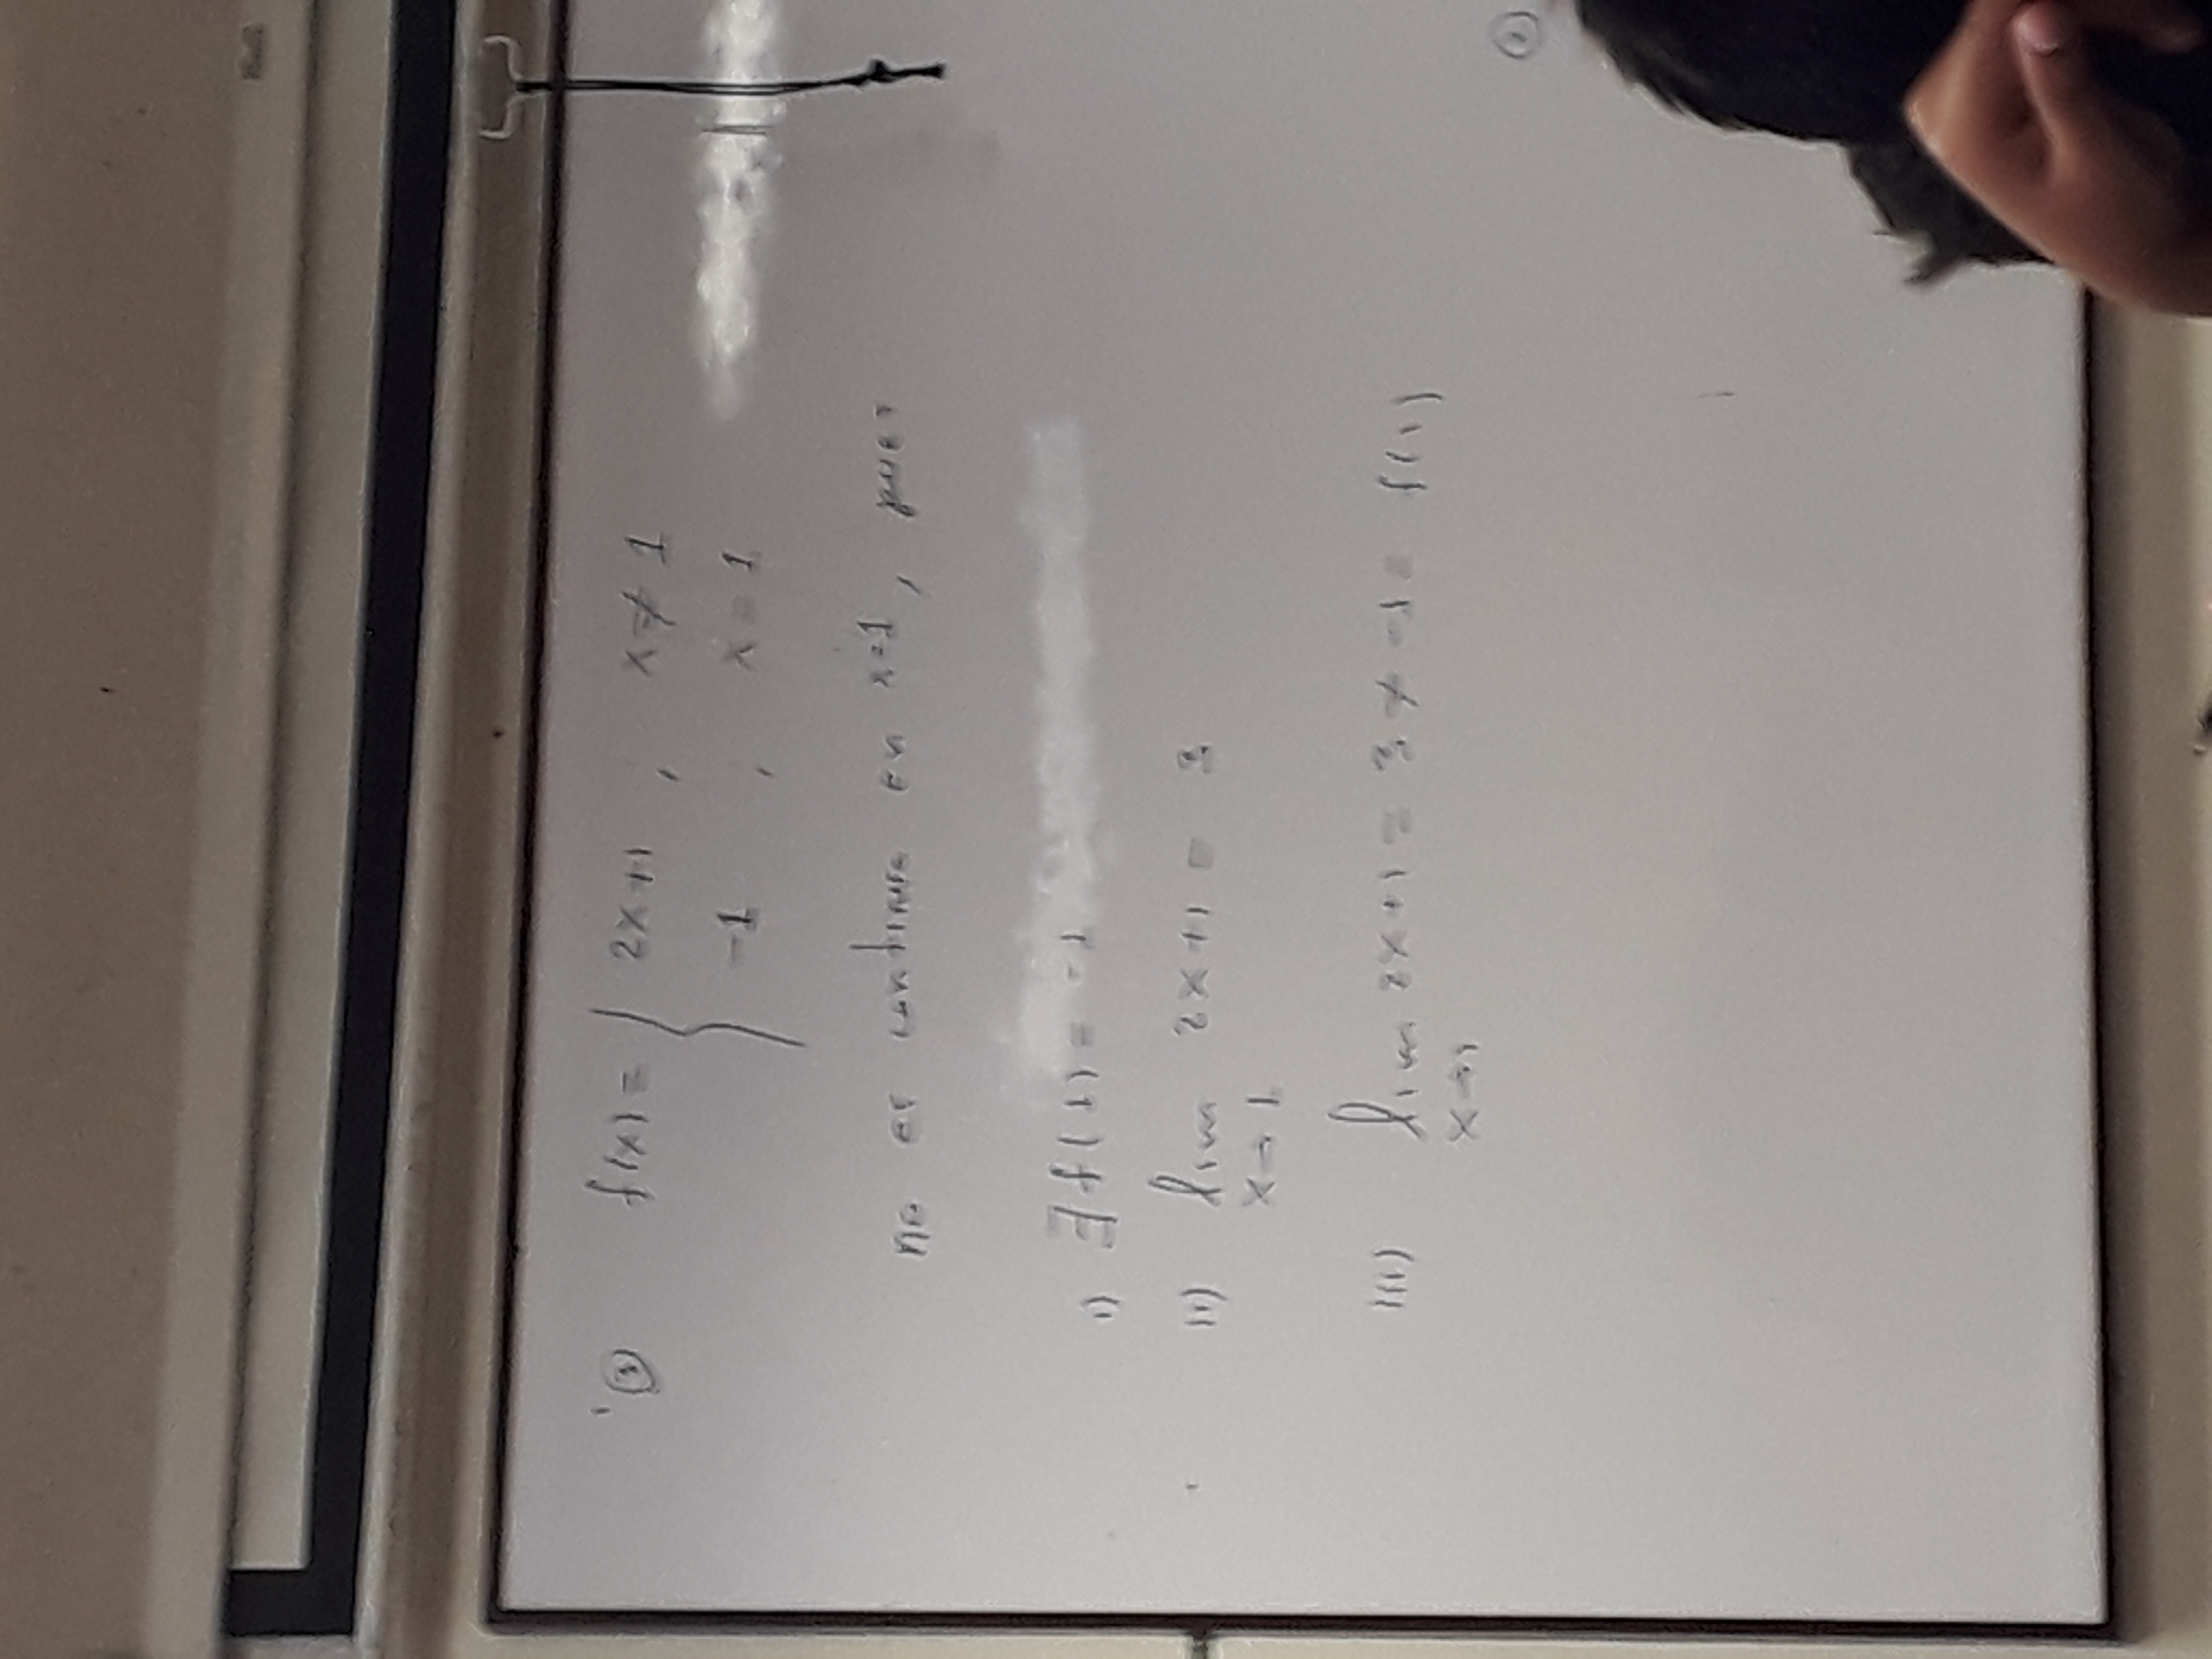 ③ f(x) = { 2x+1 , x ≠ 1
-1 , x = 1
no es continua en x=1, pues
i) ∃ f(1) = -1
ii) lim 2x+1 = 3
x→1
iii) lim 2x+1 = 3 ≠ -1 = f(1)
x→1